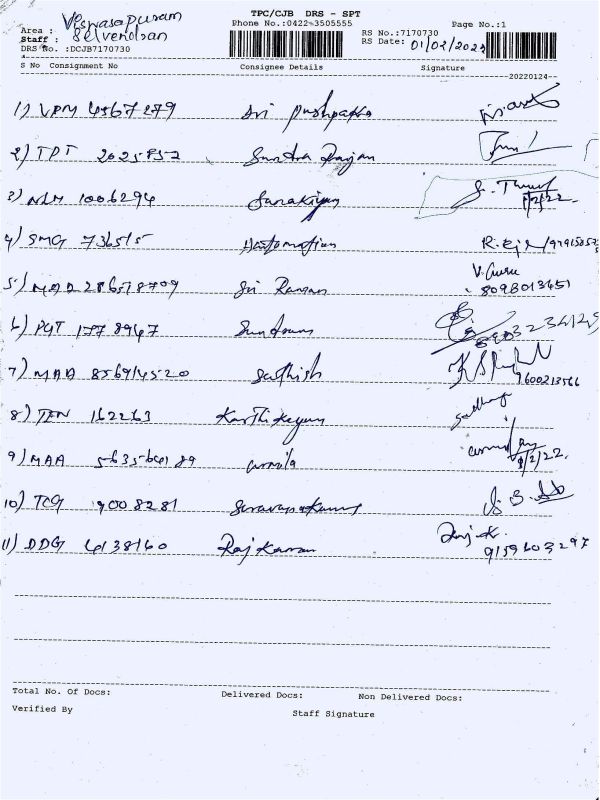 TPC/CJB DRS - SPT
Phone No.:0422-3505555 Page No.:1
Area : Viswasapuram
Staff : Selvendran
DRS No. :DCJB7170730
RS No.:7170730
RS Date: 01/02/2022
S No Consignment No Consignee Details Signature
20220124
1) VPM 4567279 Sri pushpa
2) TPT 2025857 Sundra Rajan
3) NLM 1006294 Janakiyan S.
1/2/22.
4) SMG 736515 Hautomation
5) MAD 286578709 Sri Raman V. Guru
8098013651
6) PGT 1778967 Sundaram
7) MAA 856914520 Sathish
9600213566
8) TEN 162263 Karthikeyan
9) MAA 563566189 urmila
1/2/22.
10) TCG 9008281 Saravanakumar
11) DDG 6138160 Raj Kumar Raj K.
9159603297
Total No. Of Docs: Delivered Docs: Non Delivered Docs:
Verified By Staff Signature